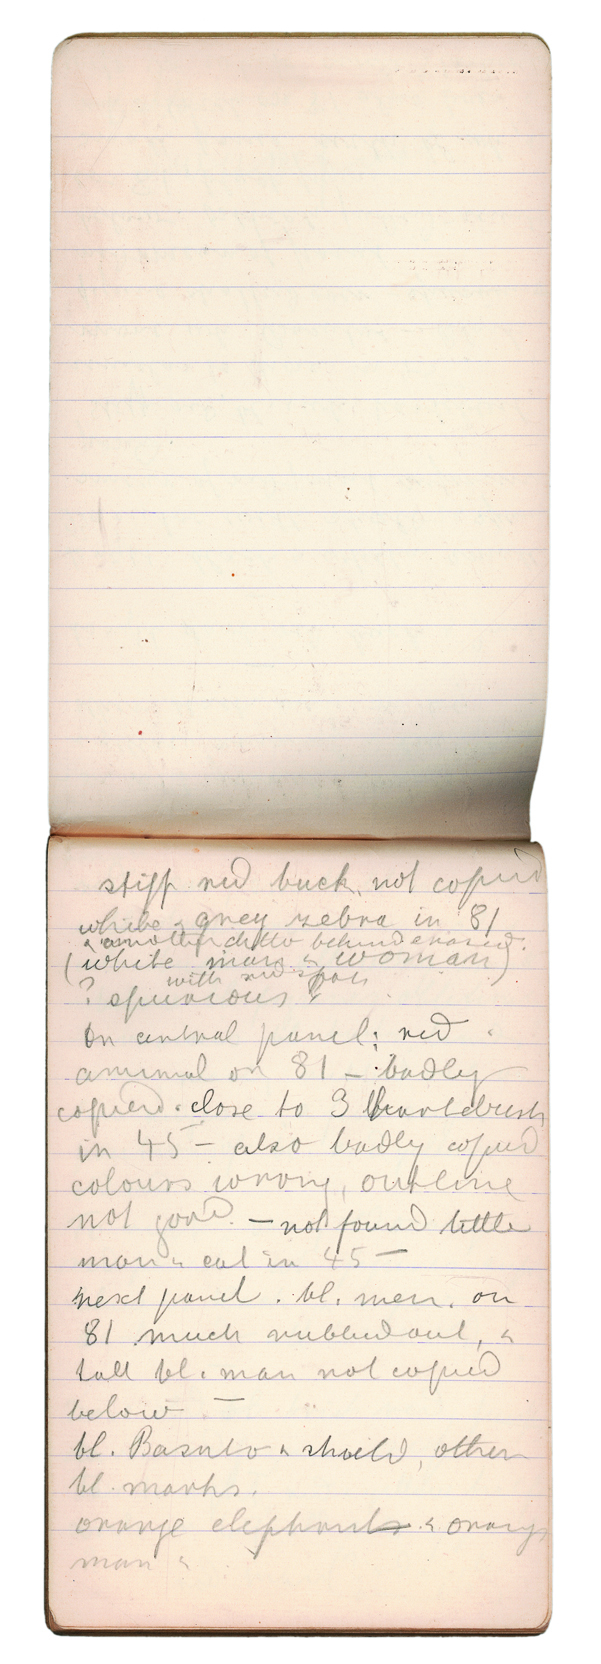 stiff red buck, not copied
white & grey zebra in 81
& another ditto behind erased.
(white man & woman)
with red spots
? spurious ?
On central panel; red
animal on 81 – badly
copied. close to 3 hartebeest
in 45 – also badly copied
colours wrong, outline
not good. – not found little
man & cat in 45 –
next panel. bl. men. on
81 much rubbed out, &
tall bl. man not copied
below –
bl. Basuto & shield, other
bl. marks.
orange elephants & orange
man &